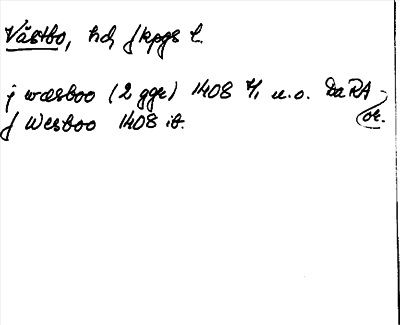 Västbo, hd, Jkpgs l.
j wæsboo (2 ggr) 1408 4/1 u.o. DaRA
J Wesboo 1408 ib. or.